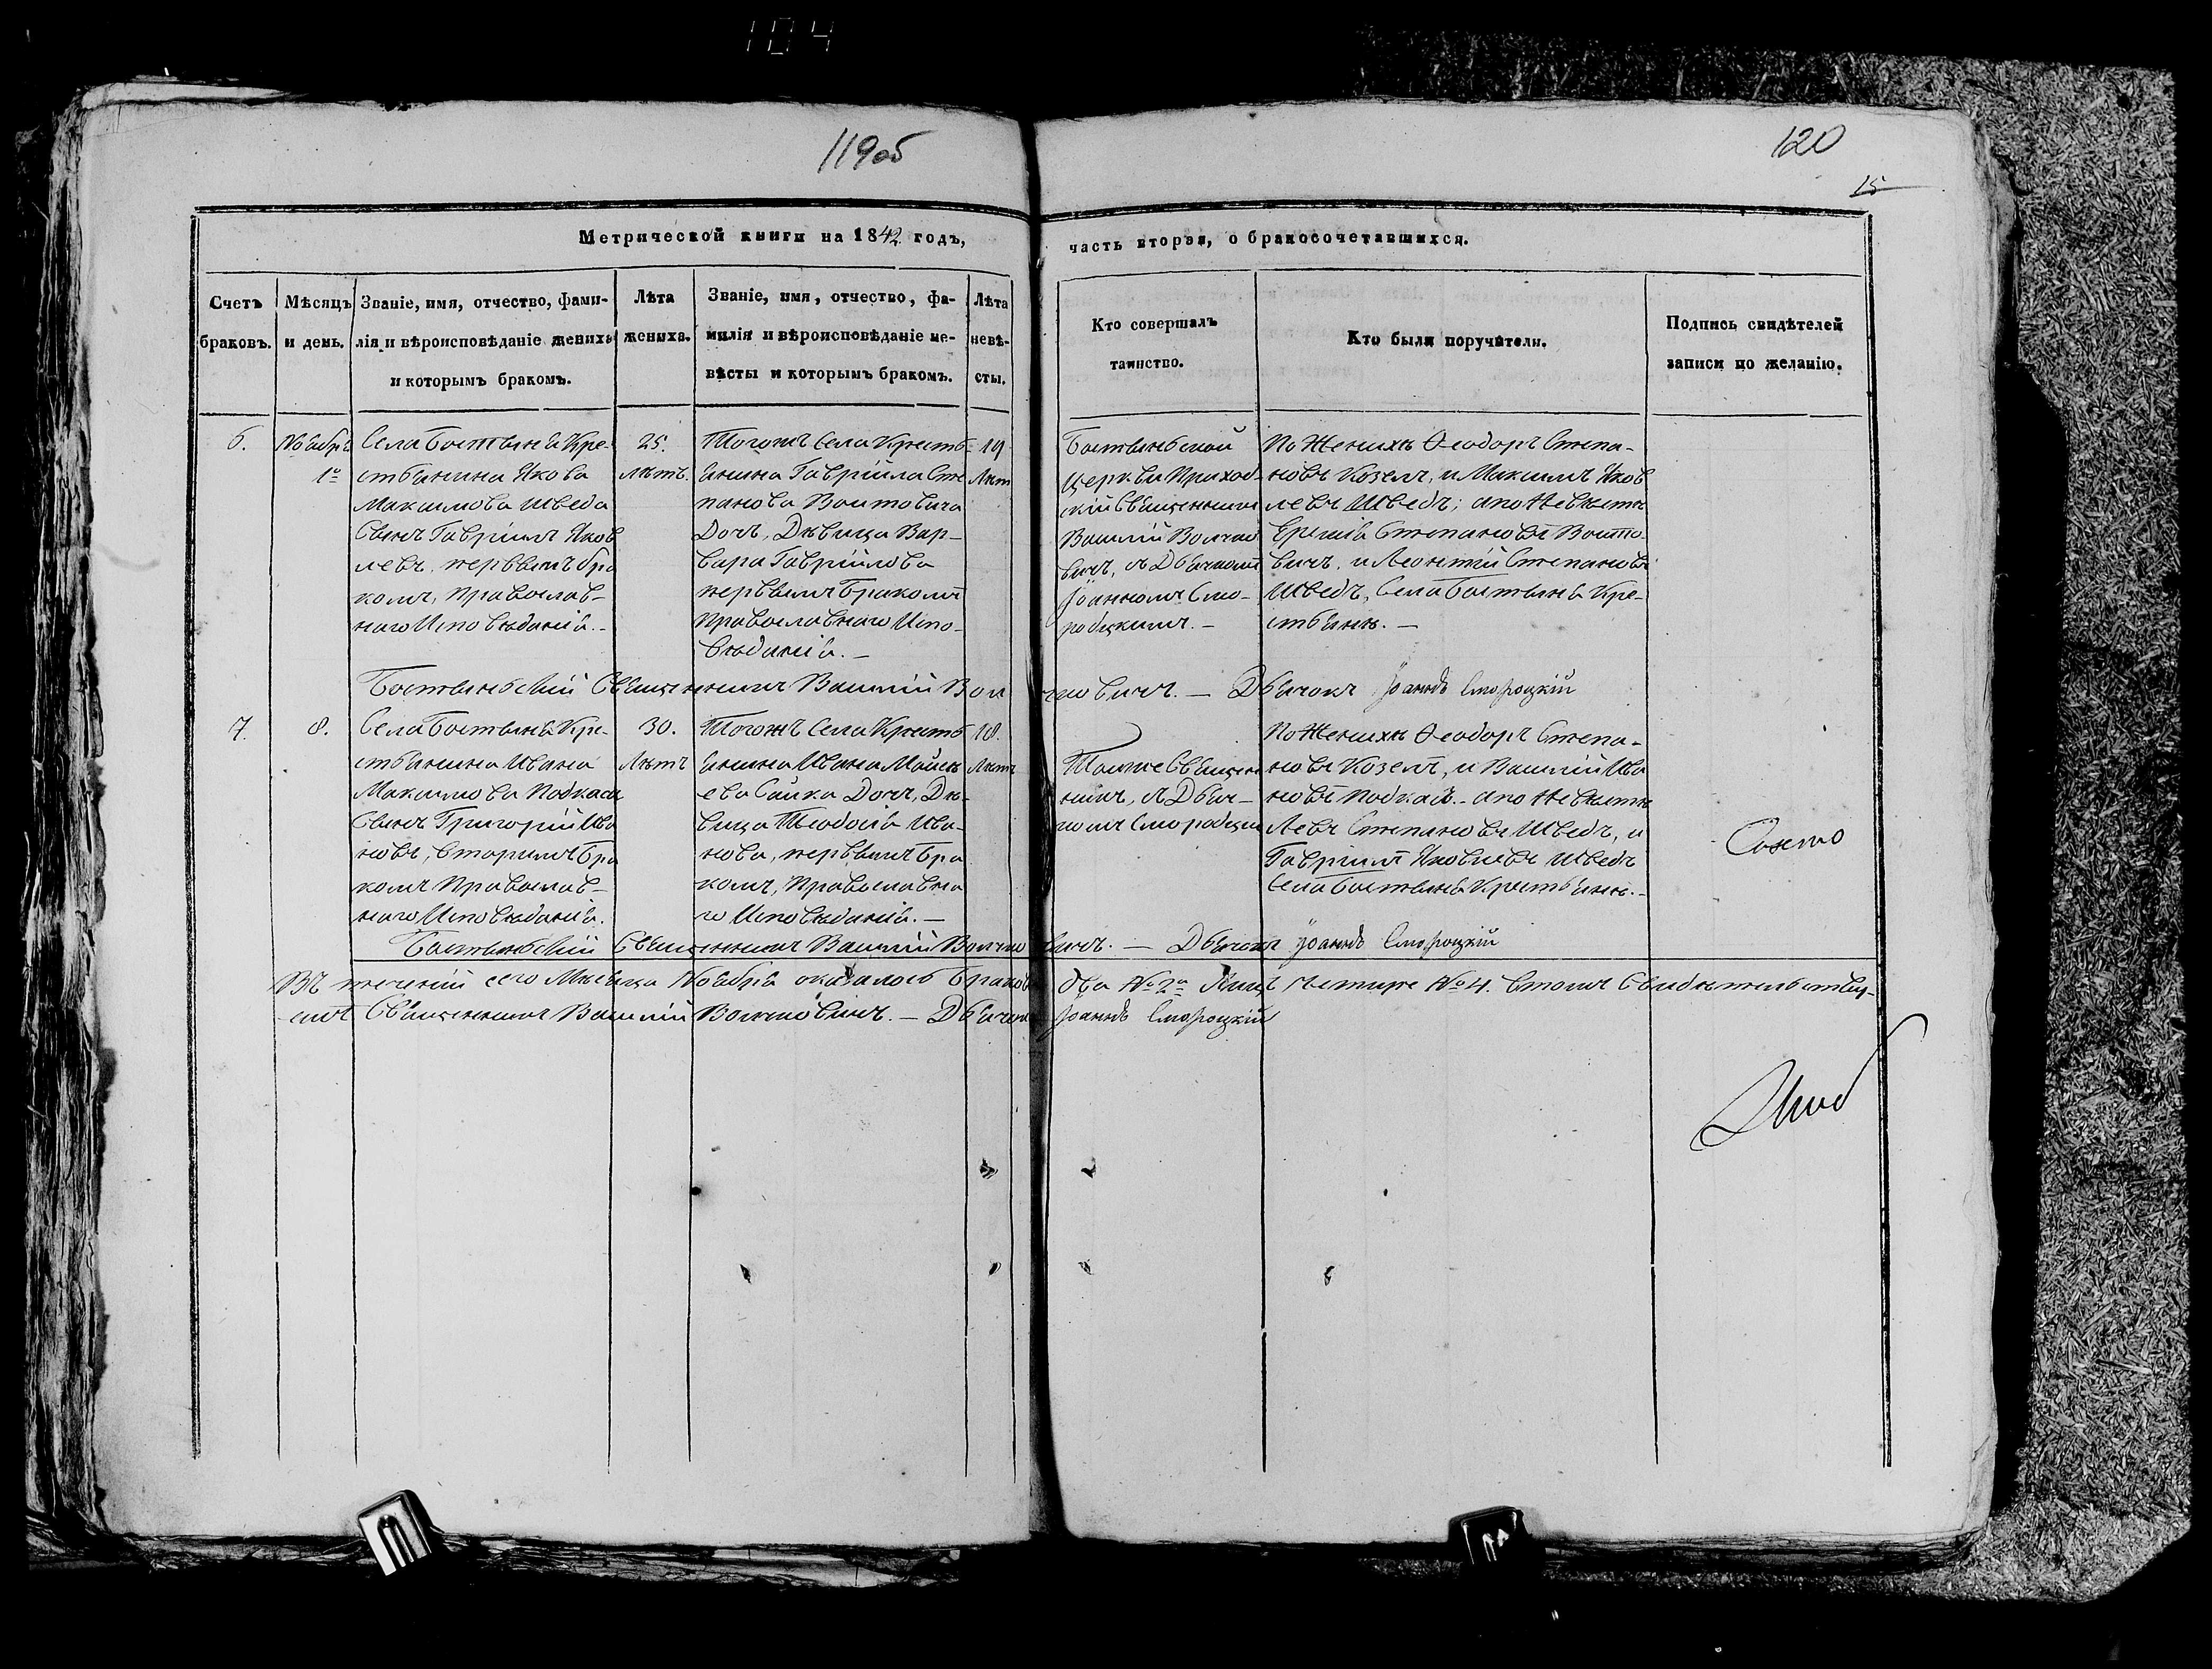 104
119об
120
15
Метрической книги на 1842 годъ,
часть вторая, о бракосочетавшихся.
Счетъ браковъ.
Мѣсяцъ и день.
Званіе, имя, отчество, фами-
лія и вѣроисповѣданіе жениха
и которымъ бракомъ.
Лѣта
жениха.
Званіе, имя, отчество, фа-
милія и вѣроисповѣданіе не-
вѣсты и которымъ бракомъ.
Лѣта
невѣ-
сты.
Кто совершалъ
таинство.
Кто были поручители.
Подпись свидѣтелей
записи по желанію.
6.
Ноября
1º
Села Бостыня Кре-
стьянина Якова
Максимова Шведа
Сынъ Гавріилъ Яков
левъ, первымъ бра
комъ, Православ-
наго Исповѣданія.-
25.
лѣтъ.
Тогожъ Села Кресть
янина Гавріила Сте
панова Воитовича
Дочь, Дѣвица Вар-
вара Гавріилова
первымъ Бракомъ
Православнаго Испо-
вѣданія.-
19
Лѣт
Бостынской
церкви Приход-
скій Священникъ
Василій
вичъ, съ Дьячкомъ
Іоанномъ Смо-
родскимъ.-
По Женихѣ Ѳеодоръ Степа-
новъ Козелъ, и Максимъ Яков
левъ Шведъ; а по Невѣстѣ
Еремія Степановъ Воито-
вичъ, и Леонтій Степановъ
Шведъ, Села Бостыня Кре-
стьяне.-
Бостынскій Священникъ Василій - Дьячокъ Іоаннъ Смороцкій
7.
8.
Села Бостыня Кре-
стьянина Ивана
Максимова
Сынъ Григорій Ива
новъ, вторымъ бра
комъ Православ-
наго Исповѣданія.
30.
Лѣтъ
Тогожъ Села Кресть
янина Ивана
ева Саика Дочь, Дѣ-
вица Ѳеодосія Ива-
нова, первымъ бра
комъ, Православна
го Исповѣданія.-
18.
Лѣтъ
Тотже Священ
никъ, съ Дьяч-
комъ Смородским
По Женихѣ Ѳеодоръ Степа-
новъ Козелъ, и Василій Ива
новъ - а по Невѣстѣ
Левъ Степановъ Шведъ, и
Гавріилъ Яковлевъ Шведъ
Села Бостыня Крестьяне.-
Бостынскій Священникъ Василій - Дьячокъ Іоаннъ Смороцкій
Въ теченіи сего Мѣсяца Ноября оказалось Браковъ два № 2º Лицъ Четыре № 4. въ томъ Свидѣтельствує-
емъ Священникъ Василій - Дьячокъ Іоаннъ Смороцкій